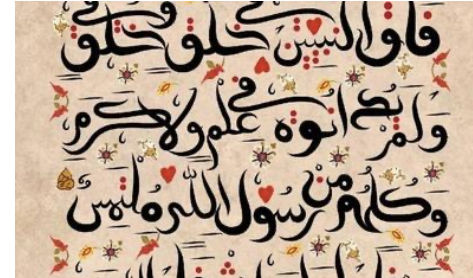 فاق النبيين في خلق وفي خلق
ولم يدانوه في علم ولا كرم
وكلهم من رسول الله ملتمس